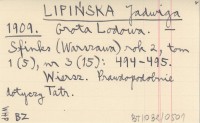 LIPIŃSKA Jadwiga
1909. Grota Lodowa.
Sfinks (Warszawa) rok 2, tom
1 (5), nr 3 (15): 494-495.
Wiersz. Prawdopodobnie
dotyczy Tatr.
WHP BZ